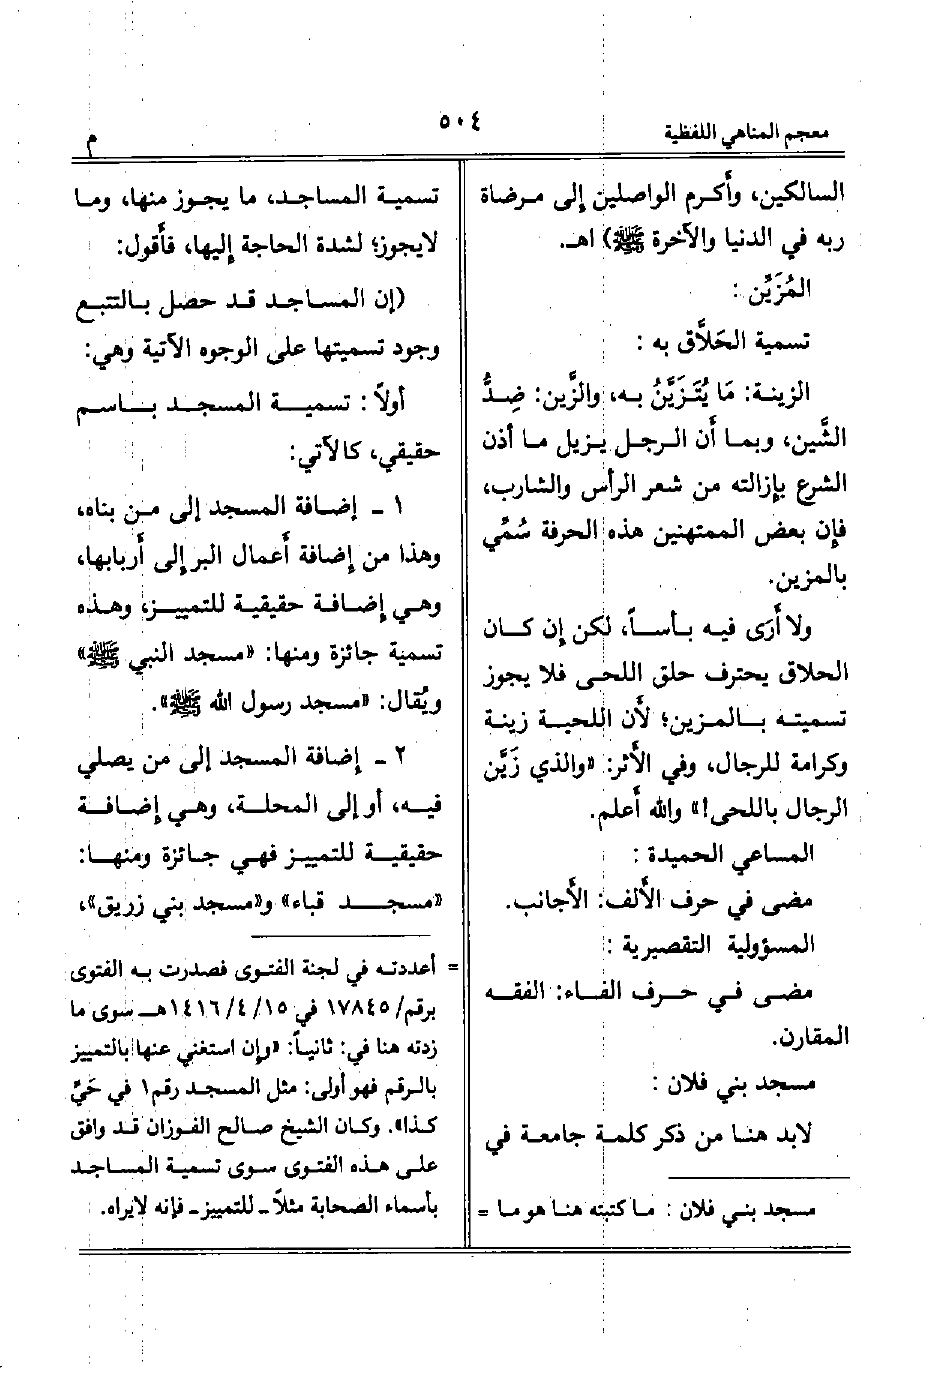 معجم المناهي اللفظية
٥٠٤
م
السالكين، وأكرم الواصلين إلى مرضاة
ربه في الدنيا والآخرة ﷺ) اهـ.
المُزَيِّن :
تسمية الحَلاَّق به :
الزينة: مَا يُتَزَيَّنُ به، والزَّين: ضِدُّ
الشَّين، وبما أن الرجل يزيل ما أذن
الشرع بإزالته من شعر الرأس والشارب،
فإن بعض الممتهنين هذه الحرفة سُمِّي
بالمزين.
ولا أرَى فيه بأساً، لكن إن كان
الحلاق يحترف حلق اللحى فلا يجوز
تسميته بالمزين؛ لأن اللحية زينة
وكرامة للرجال، وفي الأثر: «والذي زَيَّن
الرجال باللحى!» والله أعلم.
المساعي الحميدة :
مضى في حرف الألف: الأجانب.
المسؤولية التقصيرية :
مضى في حرف الفاء: الفقه
المقارن.
مسجد بني فلان :
لابد هنا من ذكر كلمة جامعة في
مسجد بني فلان : ما كتبته هنا هو ما =
تسمية المساجد، ما يجوز منها، وما
لايجوز؛ لشدة الحاجة إليها، فأقول:
(إن المساجد قد حصل بالتتبع
وجود تسميتها على الوجوه الآتية وهي:
أولاً : تسمية المسجد باسم
حقيقي، كالآتي:
١ ـ إضافة المسجد إلى من بناه،
وهذا من إضافة أعمال البر إلى أربابها،
وهي إضافة حقيقية للتمييز، وهذه
تسمية جائزة ومنها: «مسجد النبي ﷺ»
ويُقال: «مسجد رسول الله ﷺ».
٢ ـ إضافة المسجد إلى من يصلي
فيه، أو إلى المحلة، وهي إضافة
حقيقية للتمييز فهي جائزة ومنها:
«مسجد قباء» و«مسجد بني زريق»،
= أعددته في لجنة الفتوى فصدرت به الفتوى
برقم/ ١٧٨٤٥ في ١٥/ ٤/ ١٤١٦هـ سوى ما
زدته هنا في: ثانياً: «وإن استغني عنها بالتمييز
بالرقم فهو أولى: مثل المسجد رقم١ في حَيِّ
كذا». وكان الشيخ صالح الفوزان قد وافق
على هذه الفتوى سوى تسمية المساجد
بأسماء الصحابة مثلاً ـ للتمييز ـ فإنه لايراه.